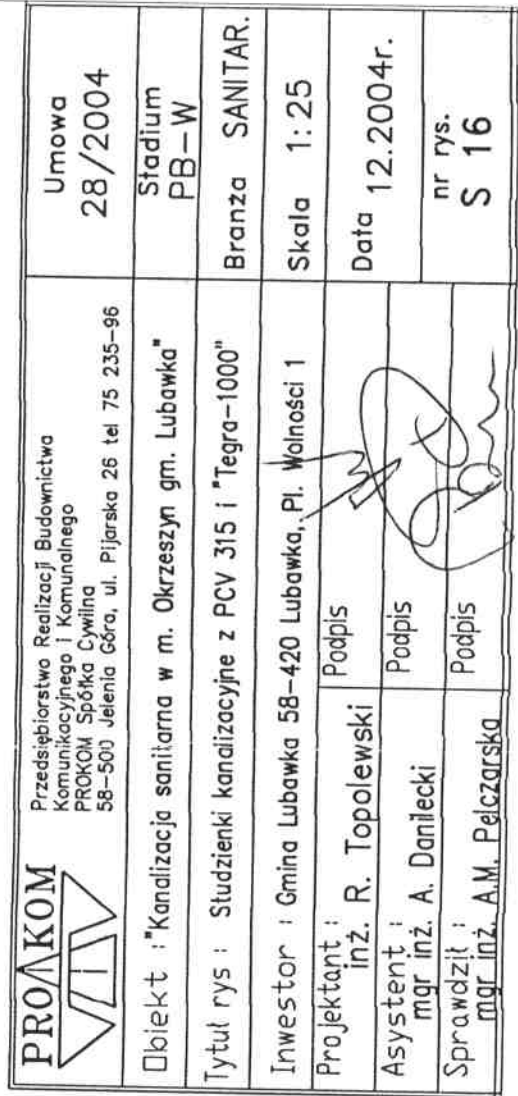 PROKOM
Przedsiębiorstwo Realizacji Budownictwa
Komunikacyjnego i Komunalnego
PROKOM Spółka Cywilna
58-500 Jelenia Góra, ul. Pijarska 26 tel 75 235-96
Umowa
28/2004
Obiekt : "Kanalizacja sanitarna w m. Okrzeszyn gm. Lubawka"
Stadium
PB-W
Tytuł rys : Studzienki kanalizacyjne z PCV 315 i "Tegra-1000"
Branża SANITAR.
Inwestor : Gmina Lubawka 58-420 Lubawka, Pl. Wolności 1
Skala 1:25
Projektant :
inż. R. Topolewski
Podpis
Data 12.2004r.
Asystent :
mgr inż. A. Danilecki
Podpis
Sprawdził :
mgr inż. A.M. Pelczarska
Podpis
nr rys.
S 16